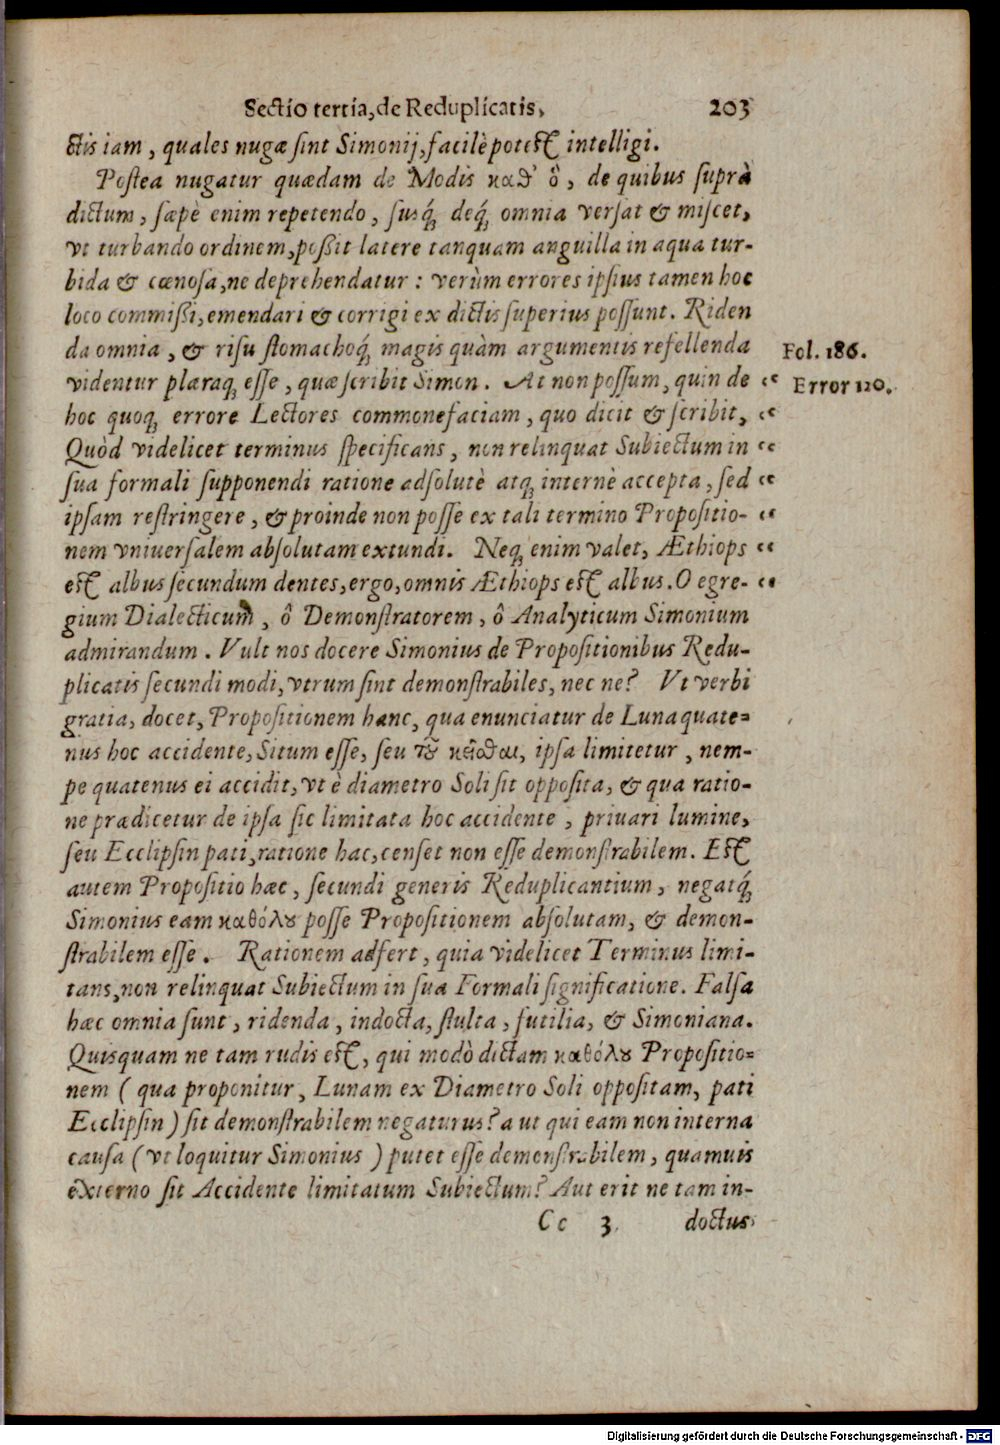 Sectio tertia, de Reduplicatis, 203
ctis iam, quales nugæ sint Simonij, facilè potest intelligi.
Postea nugatur quædam de Modis καθ᾽ ὃ, de quibus suprà
dictum, sæpè enim repetendo, susq́; deq́; omnia versat & miscet,
vt turbando ordinem, poßit latere tanquam anguilla in aqua tur-
bida & cœnosa, ne deprehendatur: verùm errores ipsius tamen hoc
loco commißi, emendari & corrigi ex dictis superius possunt. Riden
da omnia, & risu stomachoq́; magis quàm argumentis refellenda
Fol. 186.
videntur pleraq; esse, quæ scribit Simon. At non possum, quin de “
Error 120.
hoc quoq; errore Lectores commonefaciam, quo dicit & scribit, “
Quòd videlicet terminus specificans, non relinquat Subiectum in “
sua formali supponendi ratione adsolutè atq; internè accepta, sed “
ipsam restringere, & proinde non posse ex tali termino Propositio- “
nem vniuersalem absolutam extundi. Neq; enim valet, Æthiops “
est albus secundum dentes, ergo, omnis Æthiops est albus. O egre- “
gium Dialecticum, ô Demonstratorem, ô Analyticum Simonium
admirandum. Vult nos docere Simonius de Propositionibus Redu-
plicatis secundi modi, vtrum sint demonstrabiles, nec ne? Vt verbi
gratia, docet, Propositionem hanc, qua enunciatur de Luna quate-
nus hoc accidente, Situm esse, seu τῷ κεῖσθαι, ipsa limitetur, nem-
pe quatenus ei accidit, vt è diametro Soli sit opposita, & qua ratio-
ne prædicetur de ipsa sic limitata hoc accidente, priuari lumine,
seu Ecclipsin pati, ratione hac, censet non esse demonstrabilem. Est
autem Propositio hæc, secundi generis Reduplicantium, negatq́;
Simonius eam καθόλου posse Propositionem absolutam, & demon-
strabilem esse. Rationem adfert, quia videlicet Terminus limi-
tans, non relinquat Subiectum in sua Formali significatione. Falsa
hæc omnia sunt, ridenda, indocta, stulta, futilia, & Simoniana.
Quisquam ne tam rudis est, qui modò dictam καθόλου Propositio-
nem (qua proponitur, Lunam ex Diametro Soli oppositam, pati
Ecclipsin) sit demonstrabilem negaturus? aut qui eam non interna
causa (vt loquitur Simonius) putet esse demonstrabilem, quamuis
externo sit Accidente limitatum Subiectum? Aut erit ne tam in-
Cc 3 doctus
Digitalisierung gefördert durch die Deutsche Forschungsgemeinschaft - DFG